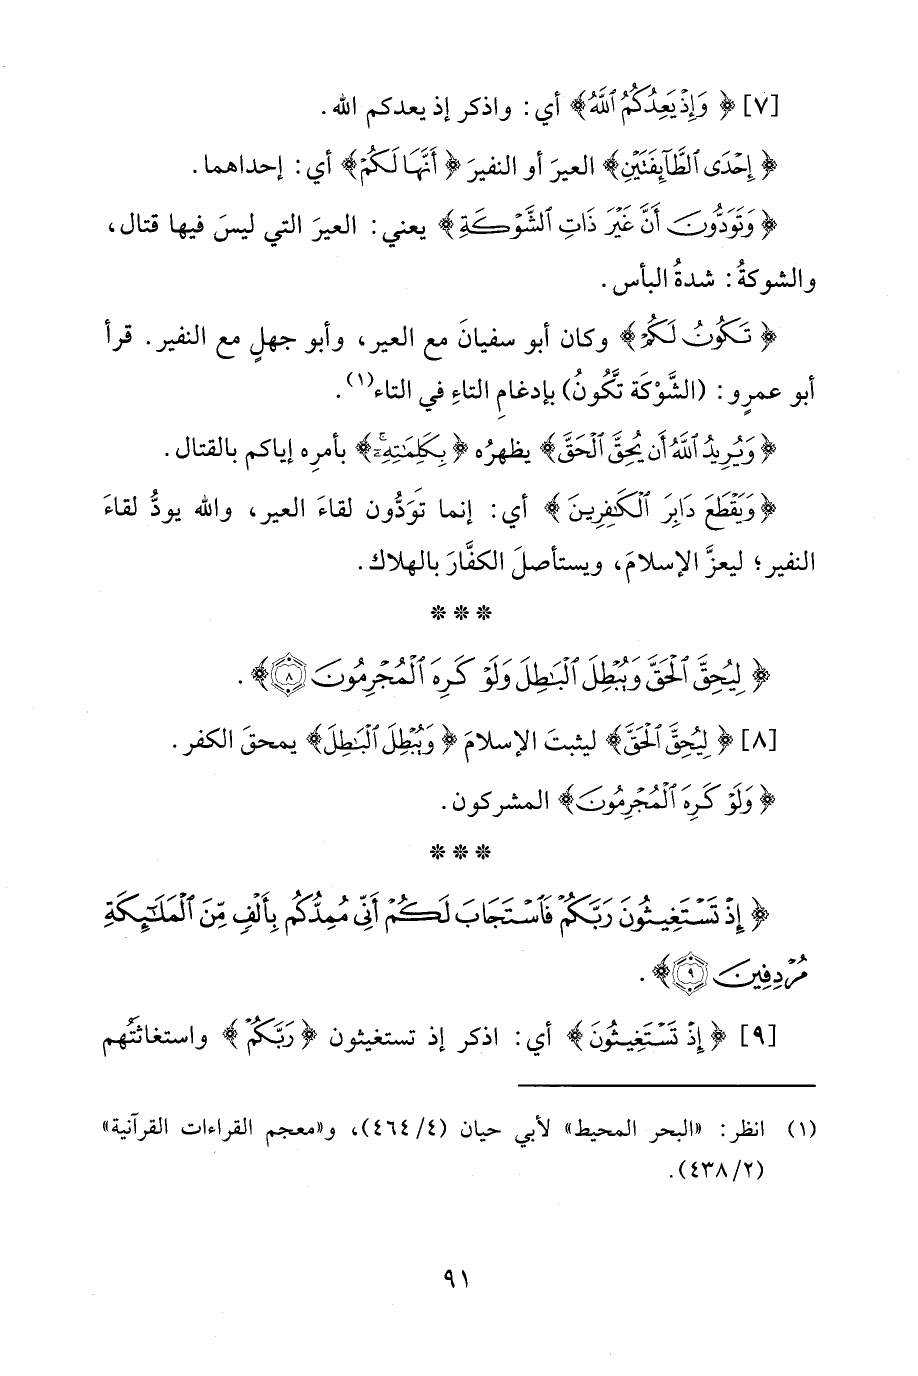 [٧] ﴿ وَإِذْ يَعِدُكُمُ ٱللَّهُ ﴾ أي: واذكر إذ يعدكم الله.
﴿ إِحْدَى ٱلطَّآئِفَتَيْنِ ﴾ العيرَ أو النفيرَ ﴿ أَنَّهَا لَكُمْ ﴾ أي: إحداهما.
﴿ وَتَوَدُّونَ أَنَّ غَيْرَ ذَاتِ ٱلشَّوْكَةِ ﴾ يعني: العيرَ التي ليسَ فيها قتال،
والشوكةُ: شدةُ البأس.
﴿ تَكُونُ لَكُمْ ﴾ وكان أبو سفيانَ مع العير، وأبو جهلٍ مع النفير. قرأ
أبو عمرٍو: (الشَّوْكَة تَّكُونُ) بإدغامِ التاءِ في التاء(١).
﴿ وَيُرِيدُ ٱللَّهُ أَن يُحِقَّ ٱلْحَقَّ ﴾ يظهرُه ﴿ بِكَلِمَٰتِهِۦ ﴾ بأمرِه إياكم بالقتال.
﴿ وَيَقْطَعَ دَابِرَ ٱلْكَٰفِرِينَ ﴾ أي: إنما تَوَدُّون لقاءَ العير، والله يودُّ لقاءَ
النفير؛ ليعزَّ الإسلامَ، ويستأصلَ الكفَّارَ بالهلاك.
* * *
﴿ لِيُحِقَّ ٱلْحَقَّ وَيُبْطِلَ ٱلْبَٰطِلَ وَلَوْ كَرِهَ ٱلْمُجْرِمُونَ ٨ ﴾.
[٨] ﴿ لِيُحِقَّ ٱلْحَقَّ ﴾ ليثبتَ الإسلامَ ﴿ وَيُبْطِلَ ٱلْبَٰطِلَ ﴾ يمحقَ الكفر.
﴿ وَلَوْ كَرِهَ ٱلْمُجْرِمُونَ ﴾ المشركون.
* * *
﴿ إِذْ تَسْتَغِيثُونَ رَبَّكُمْ فَٱسْتَجَابَ لَكُمْ أَنِّي مُمِدُّكُم بِأَلْفٍ مِّنَ ٱلْمَلَٰٓئِكَةِ
مُرْدِفِينَ ٩ ﴾.
[٩] ﴿ إِذْ تَسْتَغِيثُونَ ﴾ أي: اذكر إذ تستغيثون ﴿ رَبَّكُمْ ﴾ واستغاثتُهم
(١) انظر: «البحر المحيط» لأبي حيان (٤/ ٤٦٤)، و«معجم القراءات القرآنية»
(٢/ ٤٣٨).
٩١